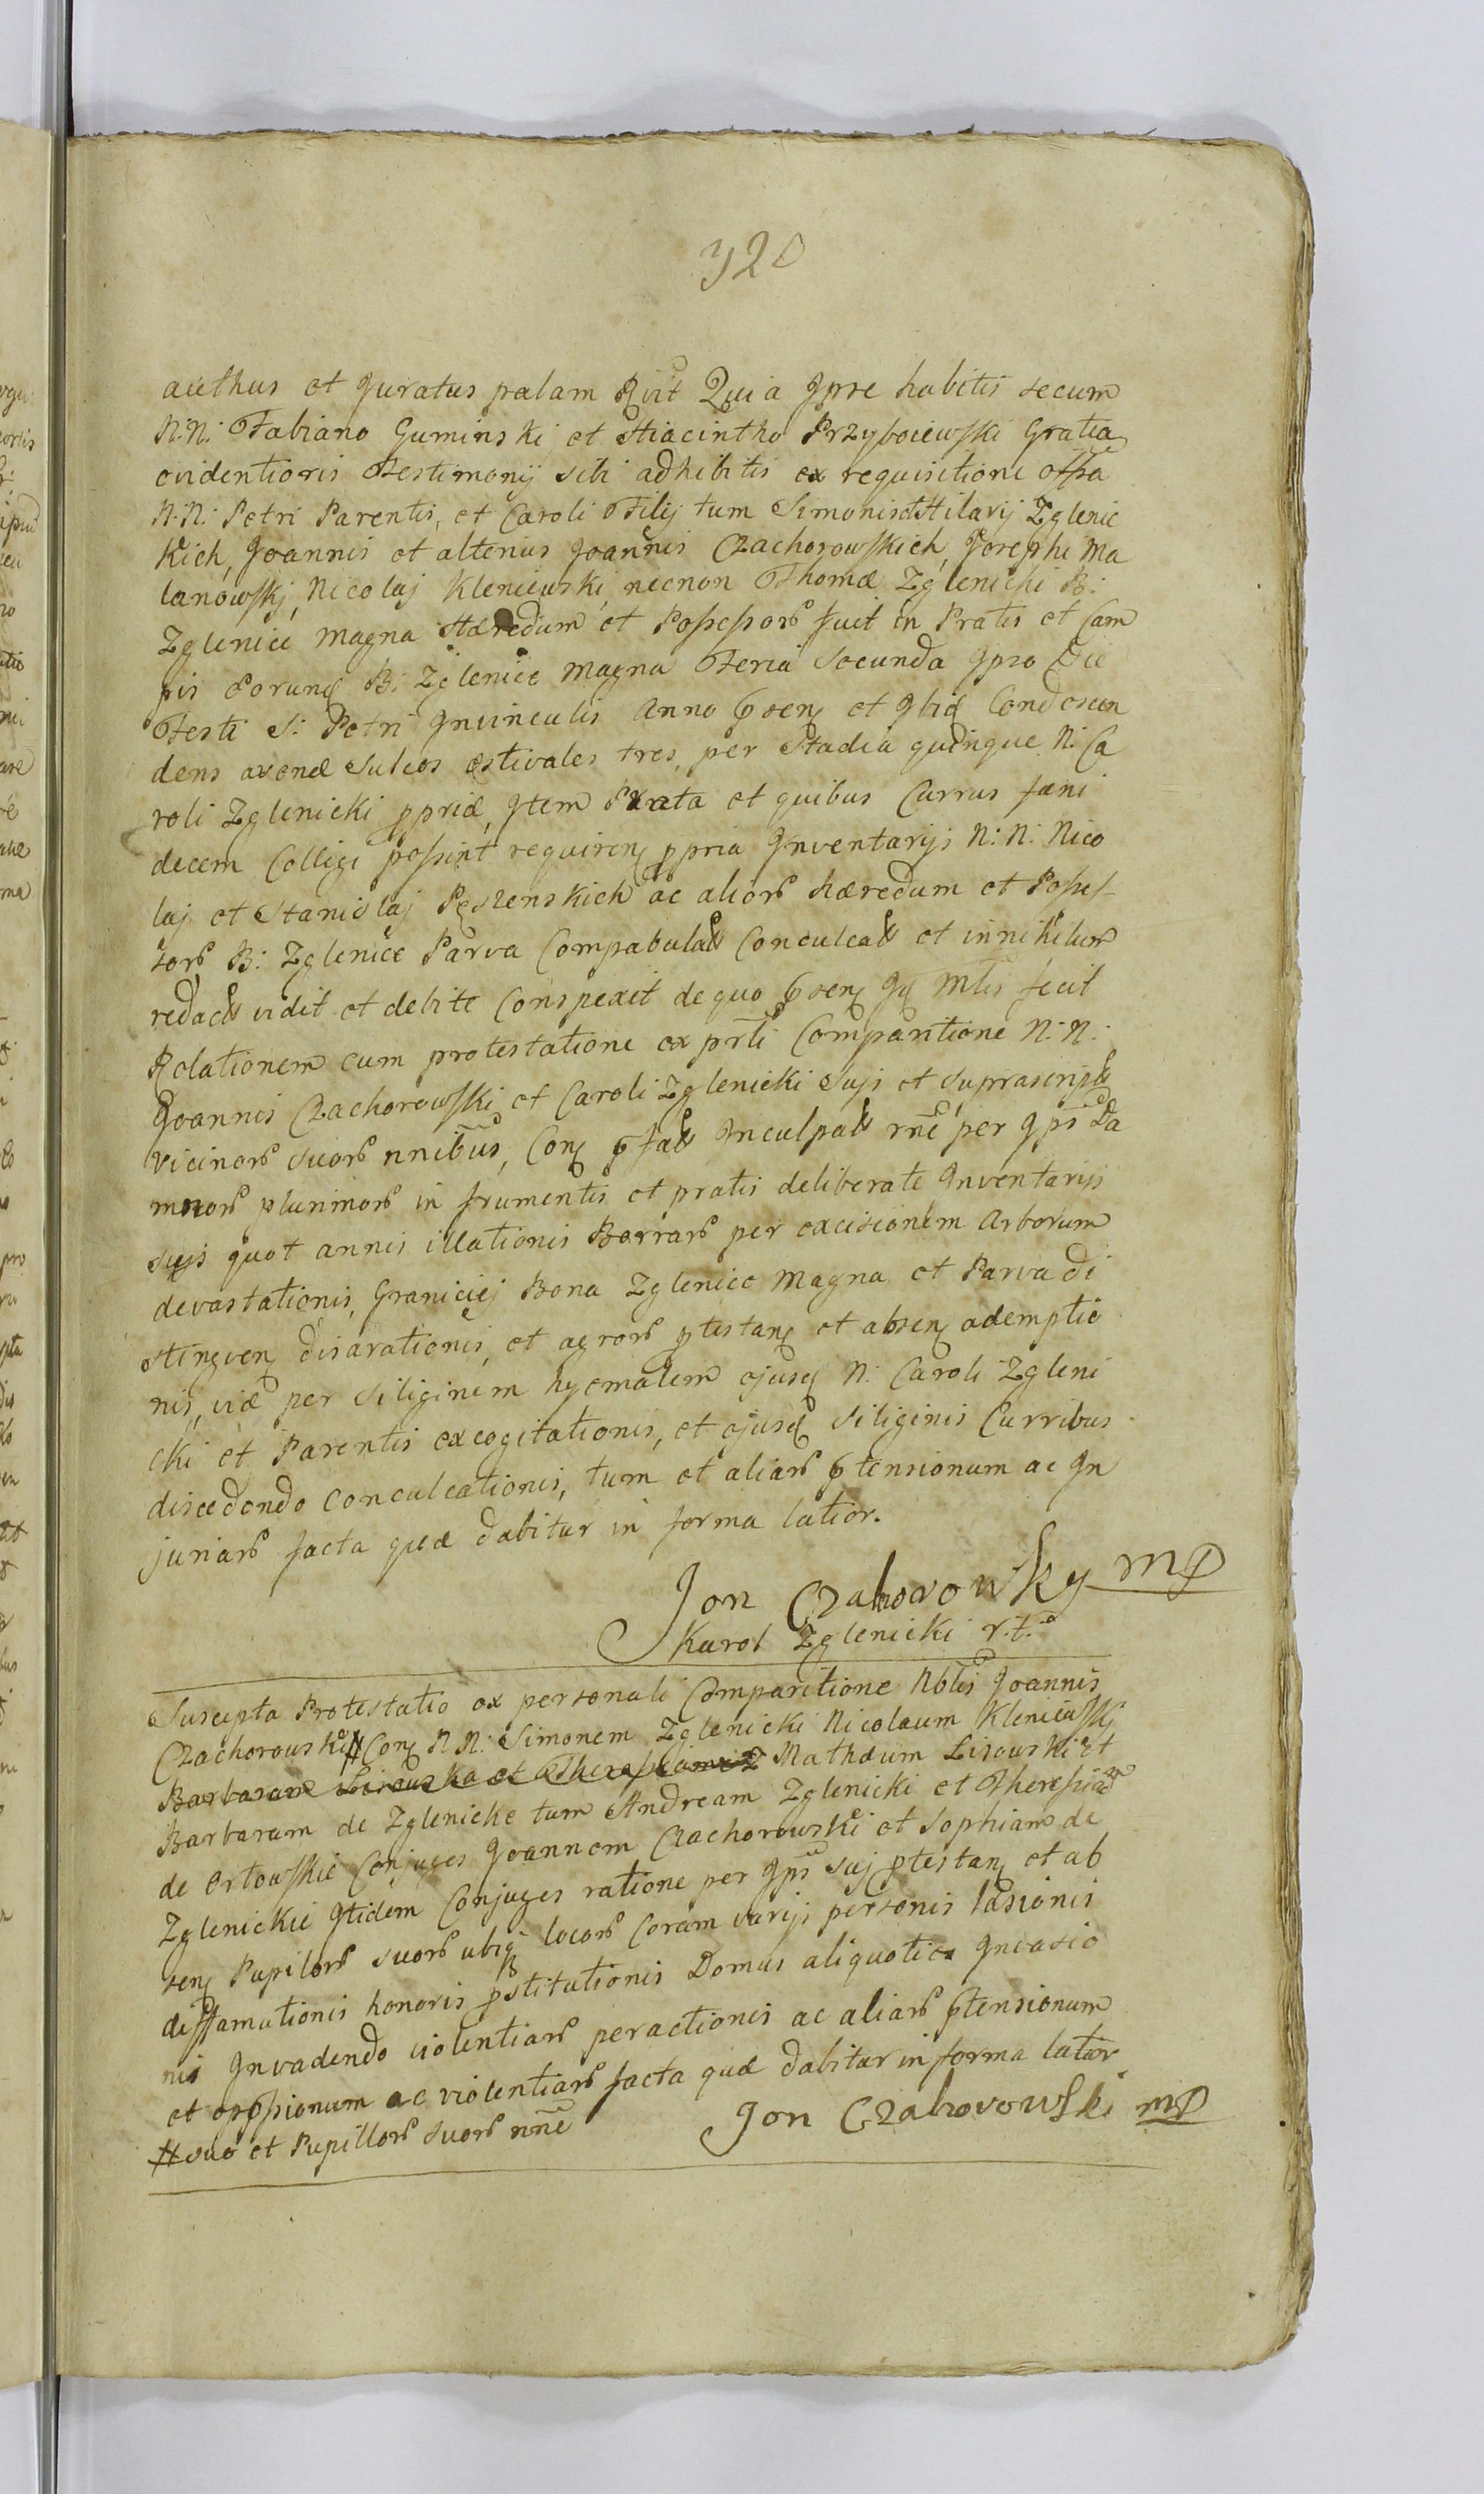 320
authus et Juratus palam Rvit Quia Ipse habitis secum
N: N: Fabiano Guminski et Hiacintho Przyboiewski Gratia
evidentioris Testimonij sibi adhibitis ex requisitione
N: N: Petri Parentis, et Caroli Filij tum Simonis et Hilarij Zglenic
kich, Joannis et alterius Joannis Czachorowskich, Josephi Ma
lanowskj, Nicolaj Kleniewski, necnon Thomæ Zglenicki B:
Zglenice Magna Hæredum et Possessorũ fuit in Pratis et Cam
pis eorunđ B: Zglenice Magna Feria Secunda ipso Die
Festi S: Petri Invinculis Anno et Ibiđ Condescen
dens avenæ Sulcos æstivales tres, per Stadia quinque N: Ca
roli Zglenicki ppriæ, Item Prata et quibus Currus fæni
decem Colligi possint ppria Inventarijs N: N: Nico
laj et Stanislaj Pęszenskich ac aliorũ hæredum et Posses
sorũ B: Zglenice Parva Compabulat Conculcat et innihilum
redact vidit et debite Conspexit de quo fecit
Relationem cum protestatione ex prti Comparitione N: N:
Joannis Czachorowski et Caroli Zglenicki Sujs et suprascript
vicinorũ suorũ nnibus, Con Inculpat rne per Ips Da
mnorũ plurimorũ in frumentis et pratis deliberate Inventarijs
sujs quot annis illationis Borrarũ per excisionem Arborum
devastationis, Graniciej Bona Zglenice Magna et Parva di
stingven disarationis, et agrorũ ptestan et absen ademptio
nis, viæ per Siliginem hyemalem ejusđ N: Caroli Zgleni
cki et Parentis excogitationis, et ejusđ Siliginis Curribus
discedendo Conculcationis, tum et aliarũ ptensionum ac In
juriarũ facta quæ dabitur in forma latior.
Jon Czahorowsky mp
Karol Zglenicki r.t.
Suscepta Protestatio ex personali Comparitione Nblis Joannis
Czachorowski # Con N N: Simonem Zglenicki Nicolaum Kleniewskj
Barbaram Lisowska et Mathæum Lisowski et
Barbaram de Zglenicke tum Andream Zglenicki et Theressiam
de Orłowskie Conjuges Joannem Czachorowski et Sophiam de
Zglenickie Itidem Conjuges ratione per Ips suj ptestan et ab
sen Pupilorũ suorũ ubiq locorũ Coram varijs personis læsionis
diffamationis honoris pstitutionis Domus aliquoties Invasio
nis Invadendo violentiarũ peractionis ac aliarũ ptensionum
et oppssionum ac violentiarũ facta quæ dabitur in forma latior
# suo et Pupillorũ suorũ nne
Jon Czahorowski mp